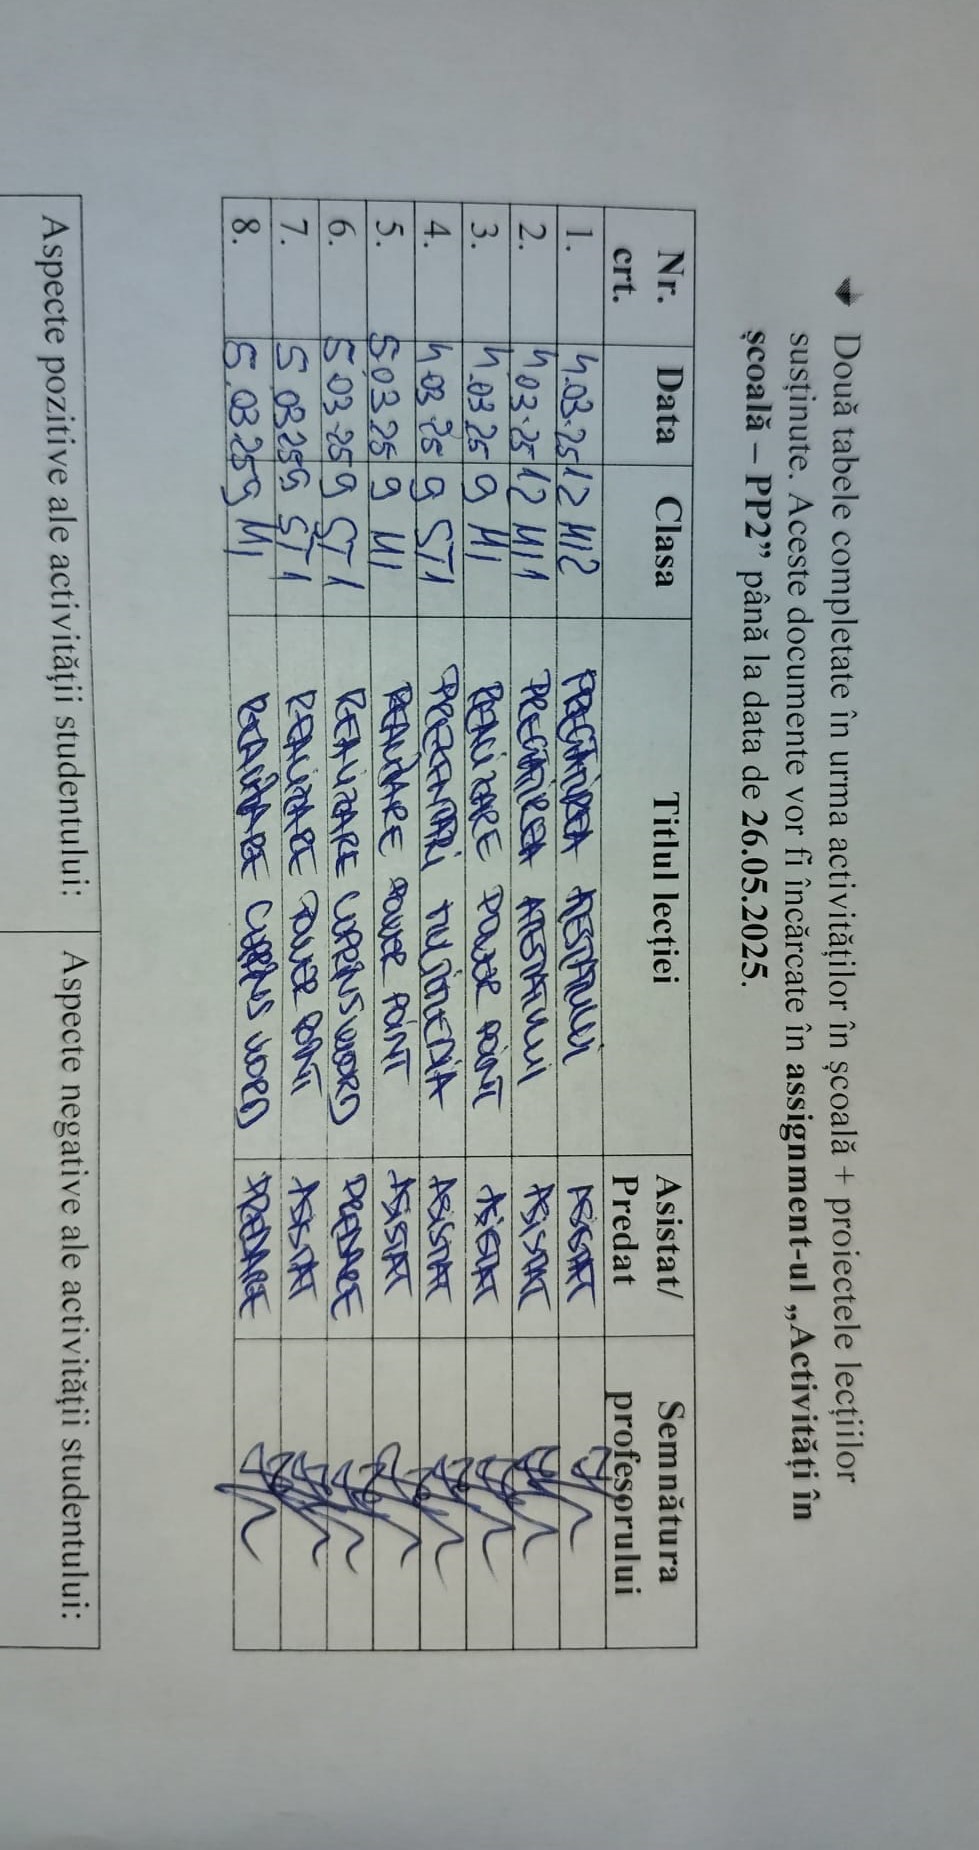 Două tabele completate în urma activităților în școală + proiectele lecțiilor
susținute. Aceste documente vor fi încărcate în assignment-ul „Activități în
școală – PP2” până la data de 26.05.2025.
Nr. crt. Data Clasa Titlul lecţiei Asistat/ Predat Semnătura profesorului
1. 4.03.25 12 MI2 PREGĂTIREA ATESTATULUI ASISTAT
2. 4 03.25 12 MI1 PREGĂTIREA ATESTATULUI ASISTAT
3. 4.03 25 9 MI REALIZARE POWER POINT ASISTAT
4. 4 03 25 9 ST1 PREZENTĂRI MULTIMEDIA ASISTAT
5. 5 03 25 9 MI REALIZARE POWER POINT ASISTAT
6. 5 03.25 9 ST1 REALIZARE CUPRINS WORD PREDARE
7. 5 03 25 9 ST1 REALIZARE POWER POINT ASISTAT
8. 5.03.25 9 MI REALIZARE CUPRINS WORD PREDARE
Aspecte pozitive ale activităţii studentului: Aspecte negative ale activităţii studentului: